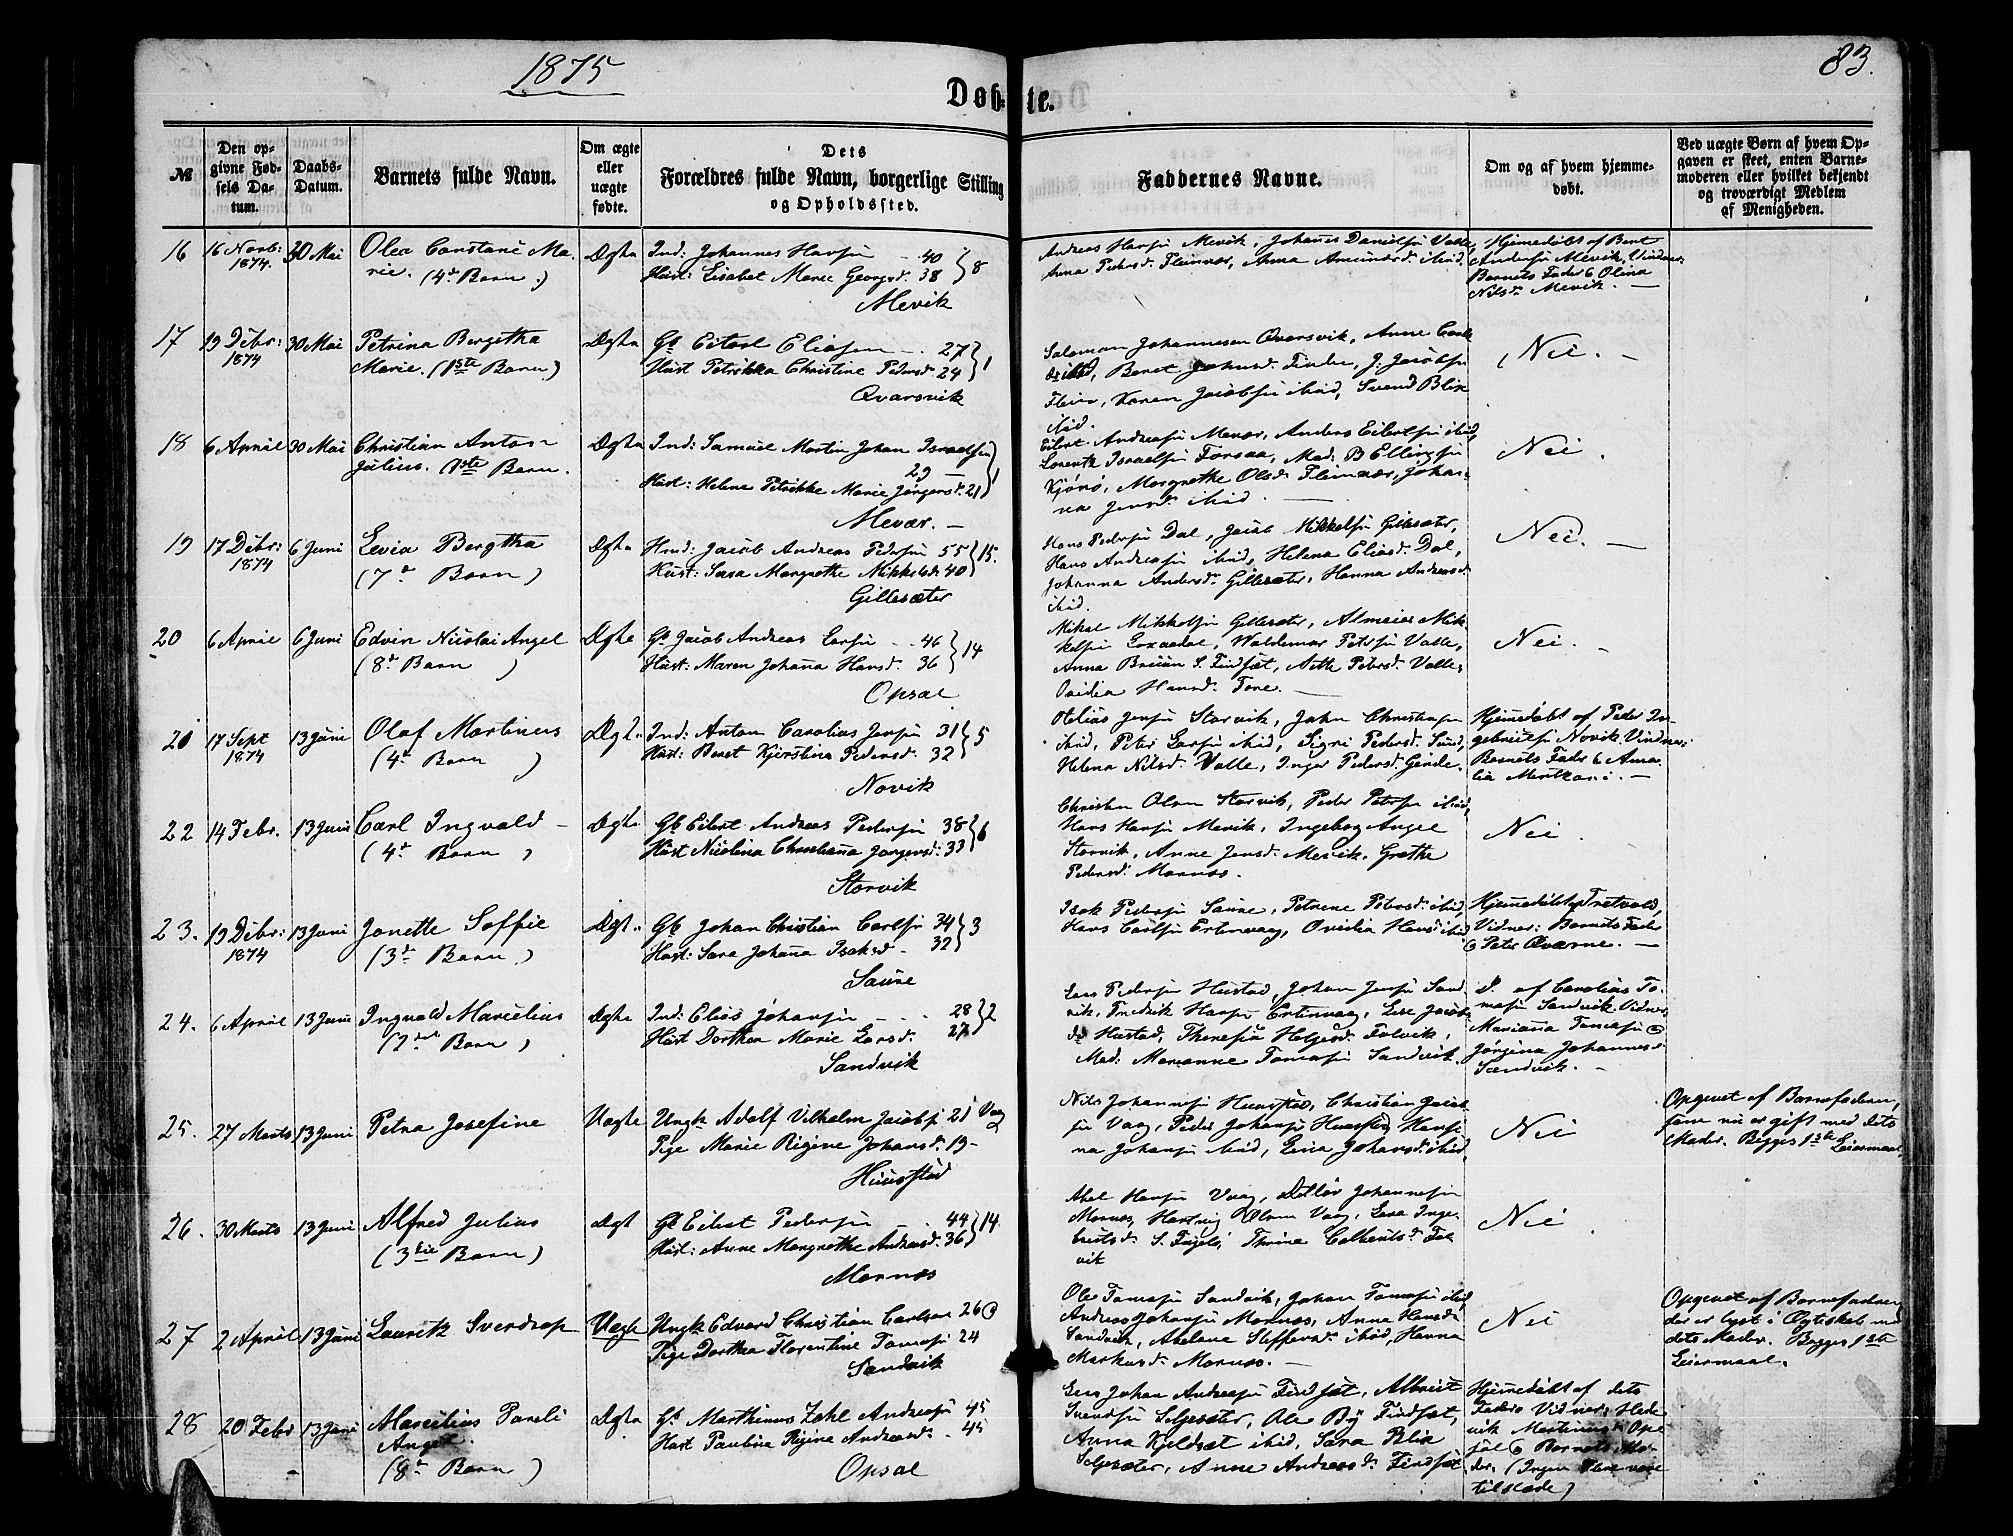 1875
83.
Døb-te.
№
Den op-
givne Fød-
sels Da-
tum.
Daabs-
Datum.
Barnets fulde Navn.
Om ægte
eller
uægte
fødte.
Dets
Forældres fulde Navn, borgerlige Stilling
og Opholdssted.
Faddernes Navne.
Om og af hvem hjemme-
døbt.
Ved uægte Børn af hvem Op-
gaven er skeet, enten Barne-
moderen eller hvilket bekjendt
og troværdigt Medlem
af Menigheden.
16 16 Novb: 1874. 30 Mai Olea Constanse Ma-
rie. (4de Barn.)
Ægte Ind: Johannes Hansen 40 } 8
Hust: Elisabet Marie Georgsd. 38
Mevik
Andreas Hansen Mevik, Johannes Danielsen Valle,
Anna Pedersd. Fleinvær, Anna Amundsd. ibid.
Hjemmedøbt af Bent
Andersen Mevik, Vidner:
Barnets Fader & Olina
Nilsd. Mevik. —
17 19 Debr: 1874 30 Mai Petrina Bergitha
Marie. (1ste Barn)
Ægte Gb. Eilert Eliasen 27 } 1
Hust Petrikka Christine Pedersd. 24
Qvarsvik
Salamon Johannesen Qvarsvik, Anne
ibid, Beret Johnsd. J. Jacobsen
Flein, Karen Jacobsen ibid, Svend Blix
ibid.
Nei. —
18 6 April 30 Mai Christian Anton
Julius. 1ste Barn.
Ægte Ind: Samuel Martin Johan Israelsen
29 } 1
Hust: Helene Petrikke Marie Jørgensd. 21
Mevær. —
Eilert Andreasen Mevær, Anders Eilertsen ibid,
Lorentz Israelsen Forsaa, Mad: B Ellingsen
Kjønø, Margrethe Olsd. Fleinvær, Johan-
na Jensd. ibid.
Nei.
19 17 Debr: 1874 6 Juni Levia Bergtha
(7de Barn)
Ægte Hmd: Jacob Andreas Pedersen 55 } 15.
Hust: Sara Margrethe Mikkelsd. 40
Gillesæter
Hans Pedersen Dal, Jacob Mikkelsen Gillesæter,
Hans Andreasen ibid, Helena Eliasd. Dal,
Johanna Andersd. Gillesæter, Hanna Andreasd.
ibid.
Nei. —
20 6 April 6 Juni Edvin Nicolai Angel
(8de Barn)
Ægte Gb. Jacob Andreas Larsen 46 } 14
Hust: Maren Johanna Hansd. 36
Opsal
Mikal Mikkelsen Gillesæter, Almeier Mik-
kelsen Waldemar Petersen Valle,
Anna Bruun S. Findsæt, Petersd. Valle,
Ovidia Hansd. Tore. —
Nei. —
21 17 Sept 1874 13 Juni Olaf Martinus
(4de Barn)
Ægt. Ind: Anton Carolius Jensen 31 } 5
Hust: Beret Kjerstina Pedersd. 32
Novik
Otelius Jensen Storvik, John Christensen
ibid, Peter Larsen ibid, Sigri Pedersd. Sund,
Helena Nilsd. Valle, Inger Pedersd. Gjerde.
Hjemmedøbt af Peder In-
gebrigtsen Novik. Vidner:
Barnets Fader & Ama-
lia Mentzoni. —
22 14 Febr. 13 Juni Carl Ingvald —
(4de Barn)
Ægte Gb Eilert Andreas Pedersen 38 } 6
Hust Nicolina Christianna Jørgensd: 33
Storvik
Christen Olsen Storvik, Peder Petersen ibid,
Hans Hansen Mevik, Ingeborg Angel
Storvik, Anne Jensd. Mevik. Grethe
Pedersd. Mornæs.
Nei.
23. 19 Debr: 1874 13 Juni Jonette Soffie
(3de Barn)
Ægt. Gb Johan Christian Carlsen 34 } 3
Hust: Sara Johanna Isaksd. 32
Saure
Isak Pedersen Saure, Petrine Petersd. ibid,
Hans Carlsen Ertenvaag, Ovidia Hansd. ibid
Hjemmedøbt af Tretvold,
Vidner: Barnets Fader
& Peter Qværne. —
24. 6 April 13 Juni Ingvald Marcelius
(2det Barn)
Ægte Ind: Elias Johansen 28 } 2
Hust Dorthea Marie Larsd. 27
Sandvik
Lars Pedersen Hustad, Johan Jensen Sand-
vik, Fredrik Hansen Ertenvaag, Lise Jacobs-
d. Hustad, Theresia Helgesd. Falvik,
Mad: Marianne Tomasen Sandvik.
D. af Carolius To-
masen Sandvik Vidner
Marianna Tomasen &
Jørgina Johannesd.
Sandvik. —
25. 27 Marts 13 Juni Petra Josefine
Uægte Ungk Adolf Vilhelm Jacobs 21 Vaag
Pige Marie Regine Johansd. 19 - 2
Huusstad
Nils Johannesen Huusstad, Christian Jacob-
sen Vaag, Peder Johansen Huusstad, Hansi-
na Johansen ibid, Lina Johansd. ibid.
Nei
Opgivet af Barnefaderen,
som nu er gift med dets
Moder. Begges 1ste Leiermaal.
26. 30 Marts 13 Juni Alfred Julius
(3die Barn)
Ægt Gb Eilert Pedersen 44 } 14
Hust: Anne Margrethe Andreasd. 36
Mornæs
Abel Hansen Vaag, Detlev Johannesen
Mornæs, Hartvig Olsen Vaag, Lise Inge-
brigtsd. S. Thrine Fal-
vik
Nei.
27 2 April 13 Juni Lauritz Sverdrup
Uægte Ungk Edvard Christian Carlsen 26
Pige Dorthea Florentine Tomasen 24
Sandvik
Ole Tomasen Sandvik, Johan Tomasen ibid,
Andreas Johansen Mornæs, Anna Hansd.
Sandvik, Abelena Steffensd. ibid, Hanna
Markusd. Mornæs. —
Nei
Opgivet af Barnefaderen,
der er lyst i Ægteskab m
dets Moder. Begges 1ste
Leiermaal.
28 20 Febr 13 Juni Marcelius Pareli
Angel.
(8de Barn)
Ægte Gb. Marthinus Zahl Andreasen 45
Hust Paulina Regine Andreasd. 45
Opsal
Lars Johan Andreasen Findsæt, Albrigt
Svendsen Selgesæter, Ole By Findsæt,
Anna Kjeldsæt ibid, Sara Blix
Selgesæter, Anne Andreasd. Findsæt
Hjemmedøbt af dets
Fader Vidner: Hede-
vik Martinusd. Op-
sal & Barnets Mo-
der. (Ingen flere vare
tilstede)